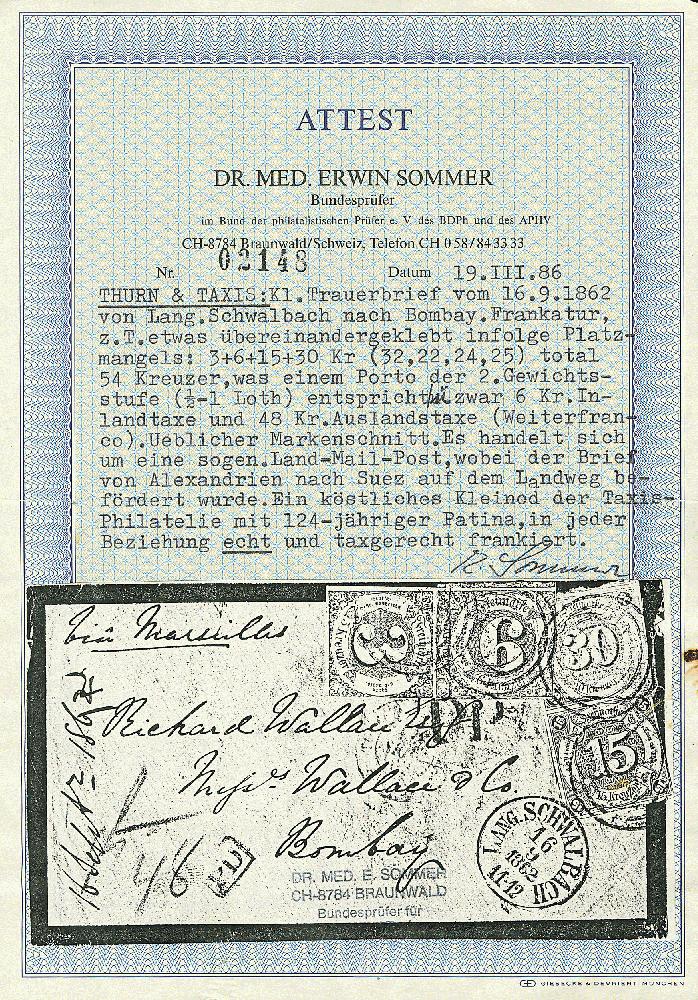 ATTEST
DR. MED. ERWIN SOMMER
Bundesprüfer
im Bund der philatelistischen Prüfer e. V. des BDPh und des APHV
CH-8784 Braunwald/Schweiz, Telefon CH 058/843333
Nr. 02148 Datum 19.III.86
THURN & TAXIS:Kl.Trauerbrief vom 16.9.1862
von Lang.Schwalbach nach Bombay.Frankatur,
z.T.etwas übereinandergeklebt infolge Platz-
mangels: 3+6+15+30 Kr (32,22,24,25) total
54 Kreuzer,was einem Porto der 2.Gewichts-
stufe (½-1 Loth) entspricht, zwar 6 Kr.In-
landtaxe und 48 Kr.Auslandstaxe (Weiterfran-
co).Ueblicher Markenschnitt.Es handelt sich
um eine sogen.Land-Mail-Post,wobei der Brief
von Alexandrien nach Suez auf dem Landweg be-
fördert wurde.Ein köstliches Kleinod der Taxis-
Philatelie mit 124-jähriger Patina,in jeder
Beziehung echt und taxgerecht frankiert.
E. Sommer
via Marseilles
3 6 30
Richard Wallace
PP
15
Messrs Wallace & Co.
Bombay
48
PD
LANG.SCHWALBACH
16
9
1862
11-12
DR. MED. E. SOMMER
CH-8784 BRAUNWALD
Bundesprüfer für
GIESECKE & DEVRIENT MÜNCHEN